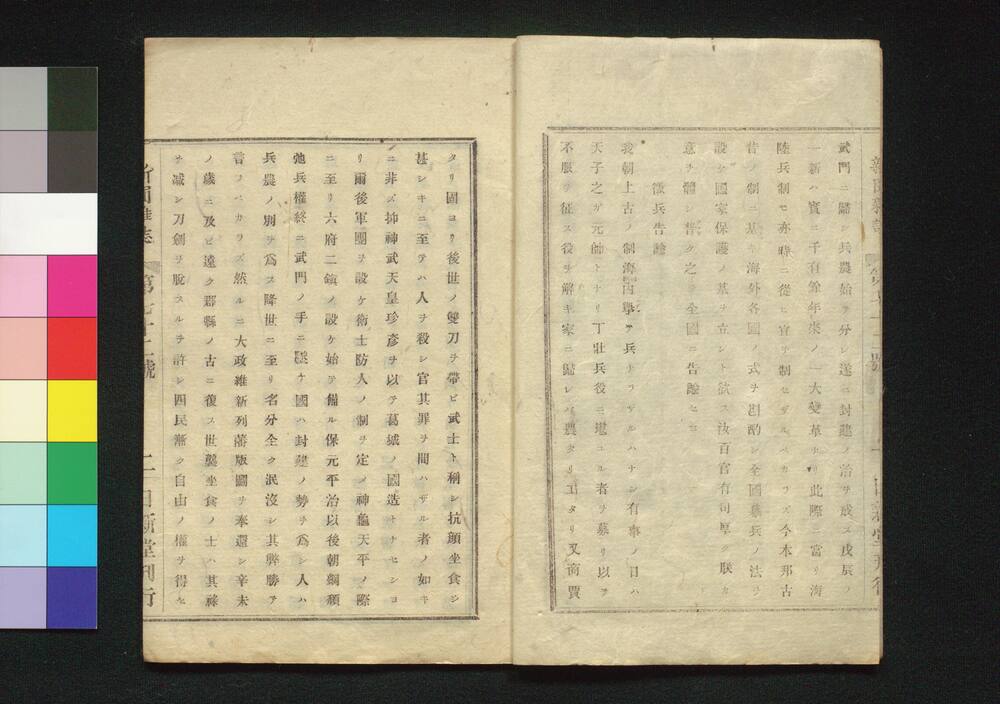 武門ニ歸シ兵農始テ分レ遂ニ封建ノ治ヲ成ス戊辰ノ
一新ハ實ニ千有餘年來ノ一大變革ナリ此際ニ當リ海
陸兵制モ亦時ニ從ヒ宜ヲ制セザルベカラズ今本邦古
昔ノ制ニ基キ海外各國ノ式ヲ斟酌シ全國募兵ノ法ヲ
設ケ國家保護ノ基ヲ立ント欲ス汝百官有司厚ク朕カ
意ヲ體シ普ク之ヲ全國ニ告諭セヨ
徴兵告諭
我朝上古ノ制海内擧テ兵ナラザルハナシ有事ノ日ハ
天子之ガ元帥トナリ丁壯兵役ニ堪ユル者ヲ募リ以テ
不服ヲ征ス役ヲ解キ家ニ歸レバ農タリ工タリ又商賈
タリ固ヨリ後世ノ雙刀ヲ帶ビ武士ト稱シ抗顔坐食シ
甚シキニ至テハ人ヲ殺シ官其罪ヲ問ハザル者ノ如キ
ニ非ズ抑神武天皇珍彥ヲ以テ葛城ノ國造トナセシヨ
リ爾後軍團ヲ設ケ衛士防人ノ制ヲ定メ神龜天平ノ際
ニ至リ六府二鎮ノ設ケ始テ備ル保元平治以後朝綱頽
弛兵權終ニ武門ノ手ニ墜チ國ハ封建ノ勢ヲ爲シ人ハ
兵農ノ別ヲ爲ス降世ニ至リ名分全ク泯沒シ其弊勝テ
言フベカラズ然ルニ大政維新列藩版圖ヲ奉還シ辛未
ノ歳ニ及ビ遠ク郡縣ノ古ニ復ス世襲坐食ノ士ハ其祿
ヲ減シ刀劍ヲ脱スルヲ許シ四民漸ク自由ノ權ヲ得セ
新聞雜誌 第七十二號 二 日新堂刊行